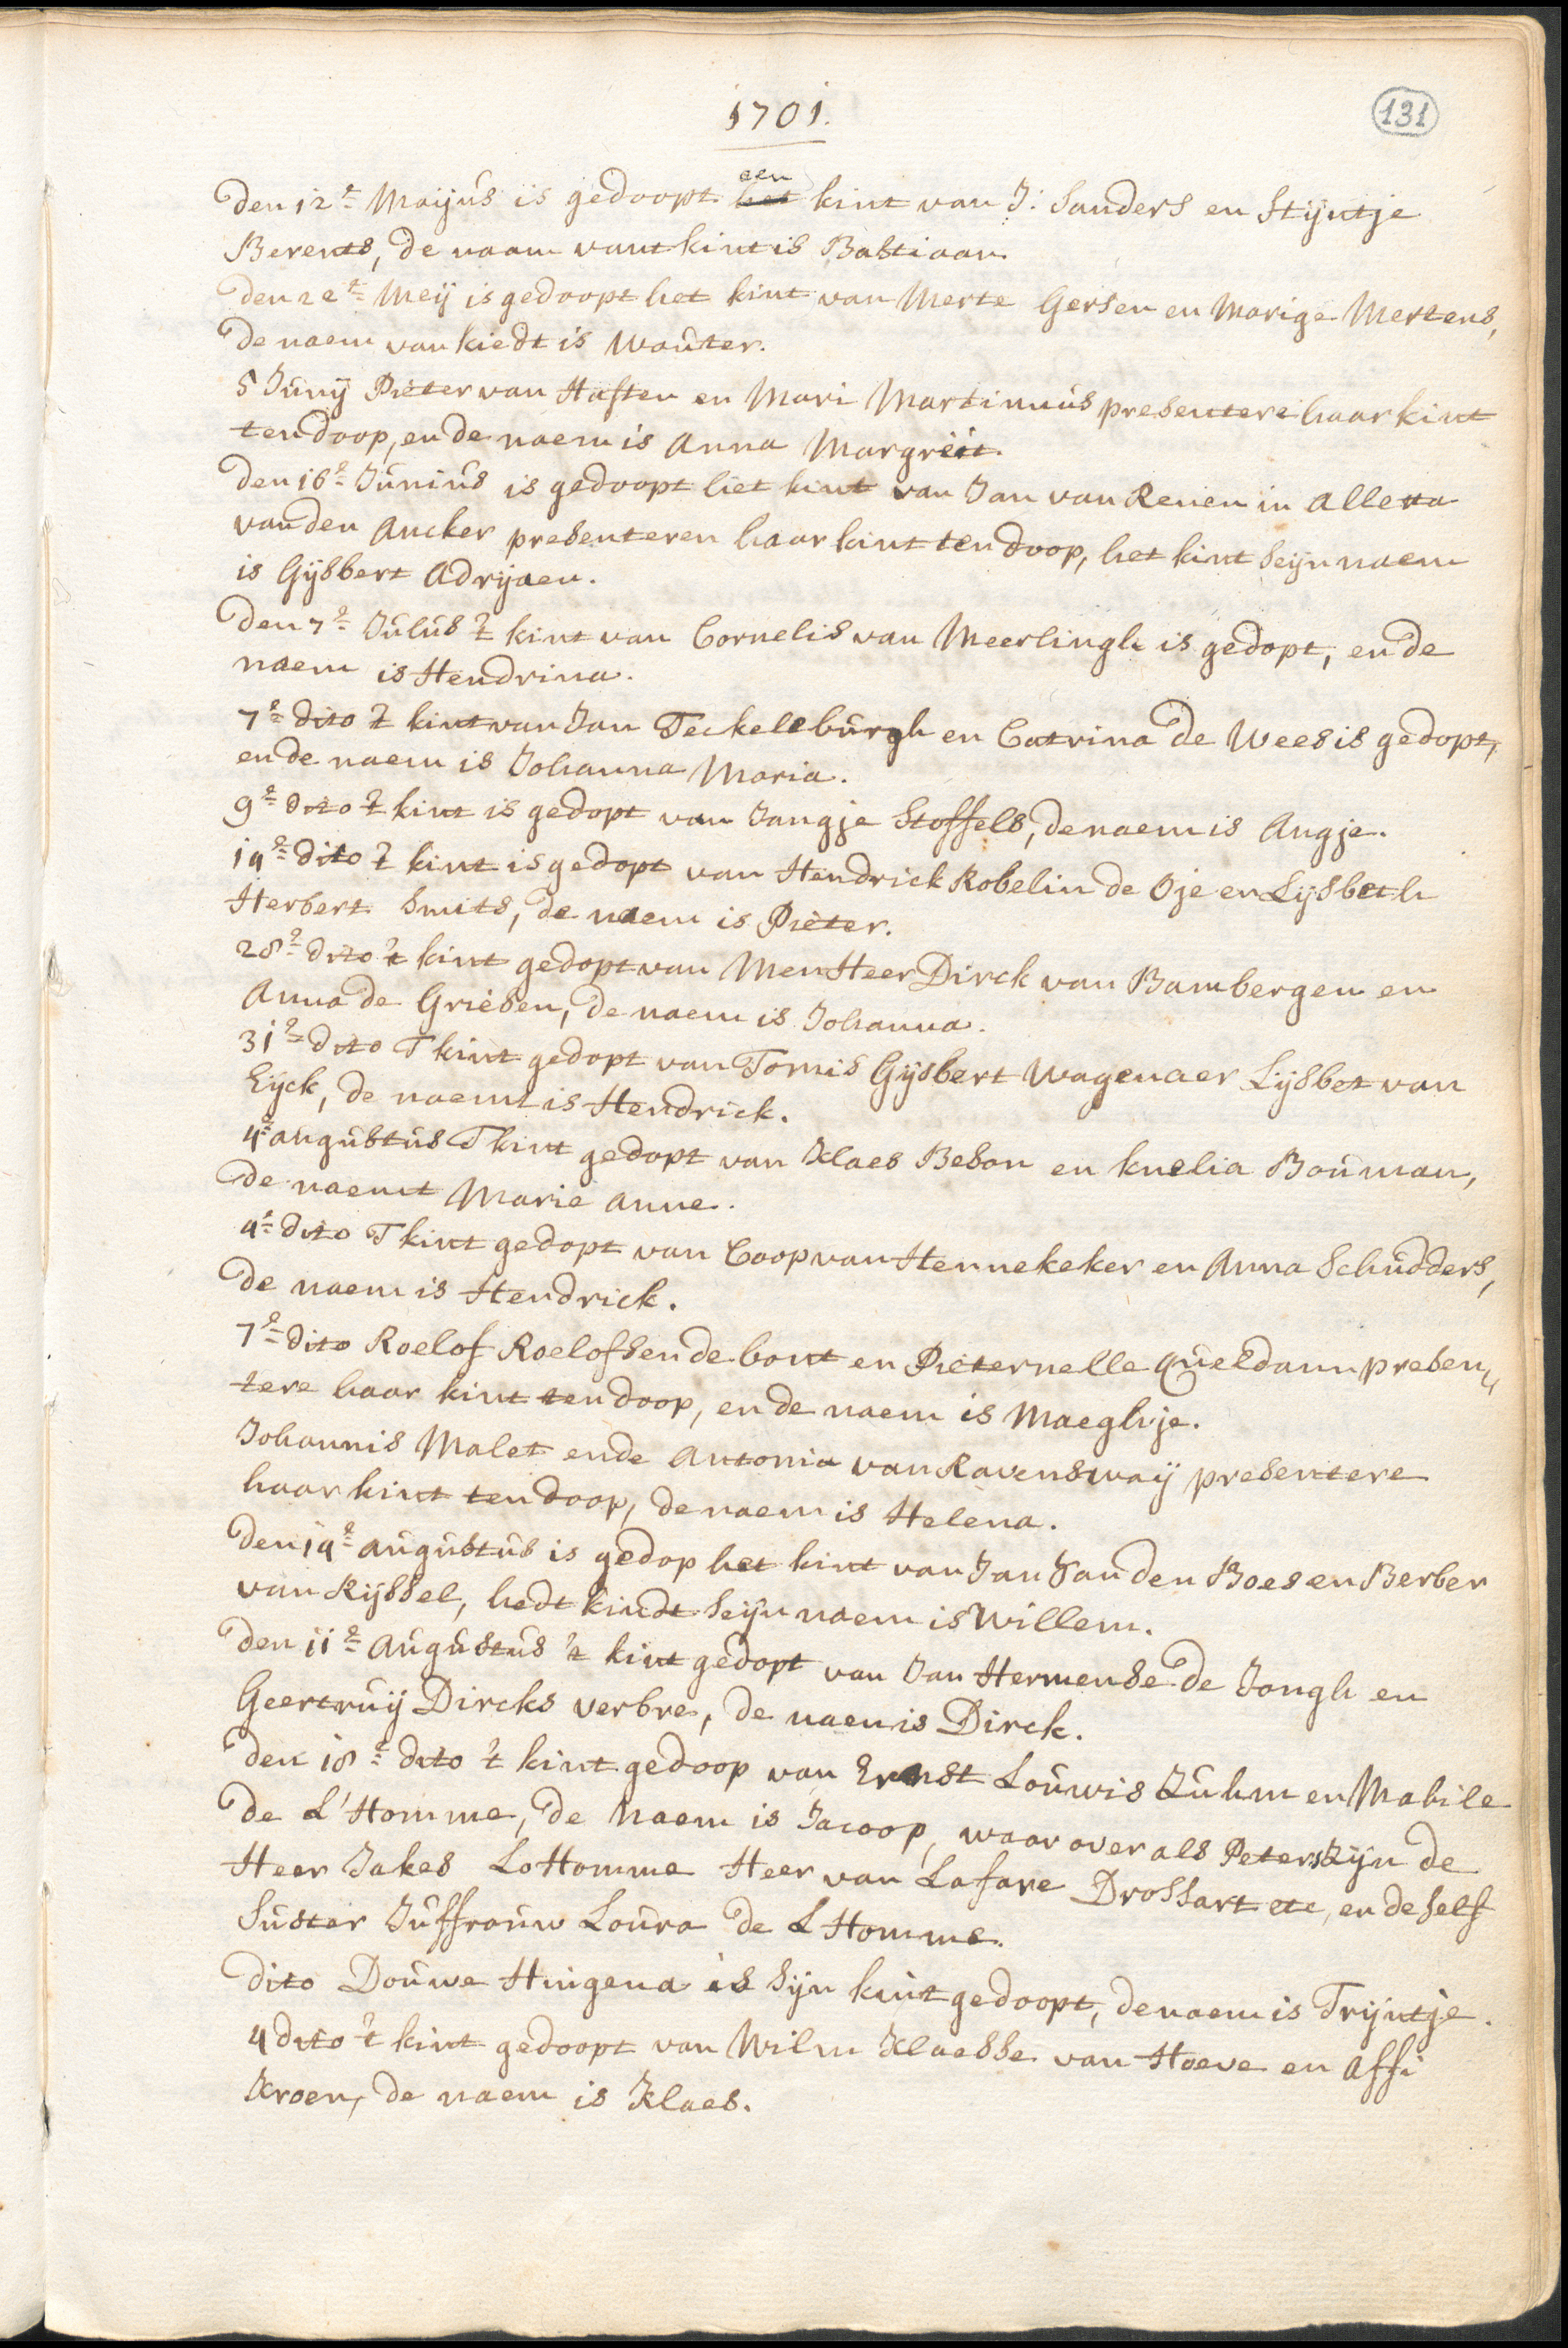 1701.
131
Den 12e Maijus is gedoopt een het kint van J: Sanders en Stijntje
Berents, de naam vant kint is Bastiaan.
Den 22e Meij is gedoopt het kint van Merte Gersen en Marige Mertens,
de naem van kiedt is Wouter.
5 Junij Pieter van Haften en Mari Martinuus presentere haar kint
ten doop, en de naem is Anna Margreit.
Den 16e Junius is gedoopt het kint van Jan van Renen in Alletta
van den Ancker presenteren haar kint ten doop, het kint seijn naem
is Gijsbert Adrijaen.
Den 7e Julus 't kint van Cornelis van Meerlingh is gedopt, en de
naem is Hendrina.
7e dito 't kint van Jan Teckelburgh en Catrina de Wees is gedopt,
en de naem is Johanna Maria.
9e dito 't kint is gedopt van Jangje Stoffels, de naem is Angje.
14e dito 't kint is gedopt van Hendrick Robelin de Oje en Lijsbeth
Herbert Smits, de naem is Pieter.
28e dito 't kint gedopt van Men Heer Dirck van Bambergen en
Anna de Grieben, de naem is Johanna.
31e dito T kint gedopt van Tomis Gijsbert Wagenaer Lijsbet van
Eijck, de naemt is Hendrick.
4e augustus T kint gedopt van Klaes Beson en knelia Bouman,
de naemt Marie Anne.
4e dito T kint gedopt van Coop van Hennekeker en Anna Schudders,
de naem is Hendrick.
7e dito Roelof Roelofsen de bont en Pieternelle Queldam presen„
tere haar kint ten doop, en de naem is Maeghje.
Johannis Malet ende Antonia van Ravenswaij presentere
haar kint ten doop, de naem is Helena.
Den 14e augustus is gedop het kint van Jan Van den Boes en Berber
van Rijssel, hedt kindt seijn naem is Willem.
Den 11e Augustus 't kint gedopt van Jan Hermense de Jongh en
Geertruij Dircks verbre, de naem is Dirck.
Den 18e dito 't kint gedoop van Ernst Louwis Zuhm en Mabile
de L'Homme, de Naem is Jacoop, waar over als Peters zijn de
Heer Jakes LoHomme Heer van Lafare Drossart etc, en de self
Suster Juffrouw Loura de L Homme.
Dito Douwe Huigena is sijn kint gedoopt, de naem is Trijntje.
4 dito 't kint gedoopt van Wilm Klaesse van Hoeve en Affi
Kroen, de naem is Klaes.